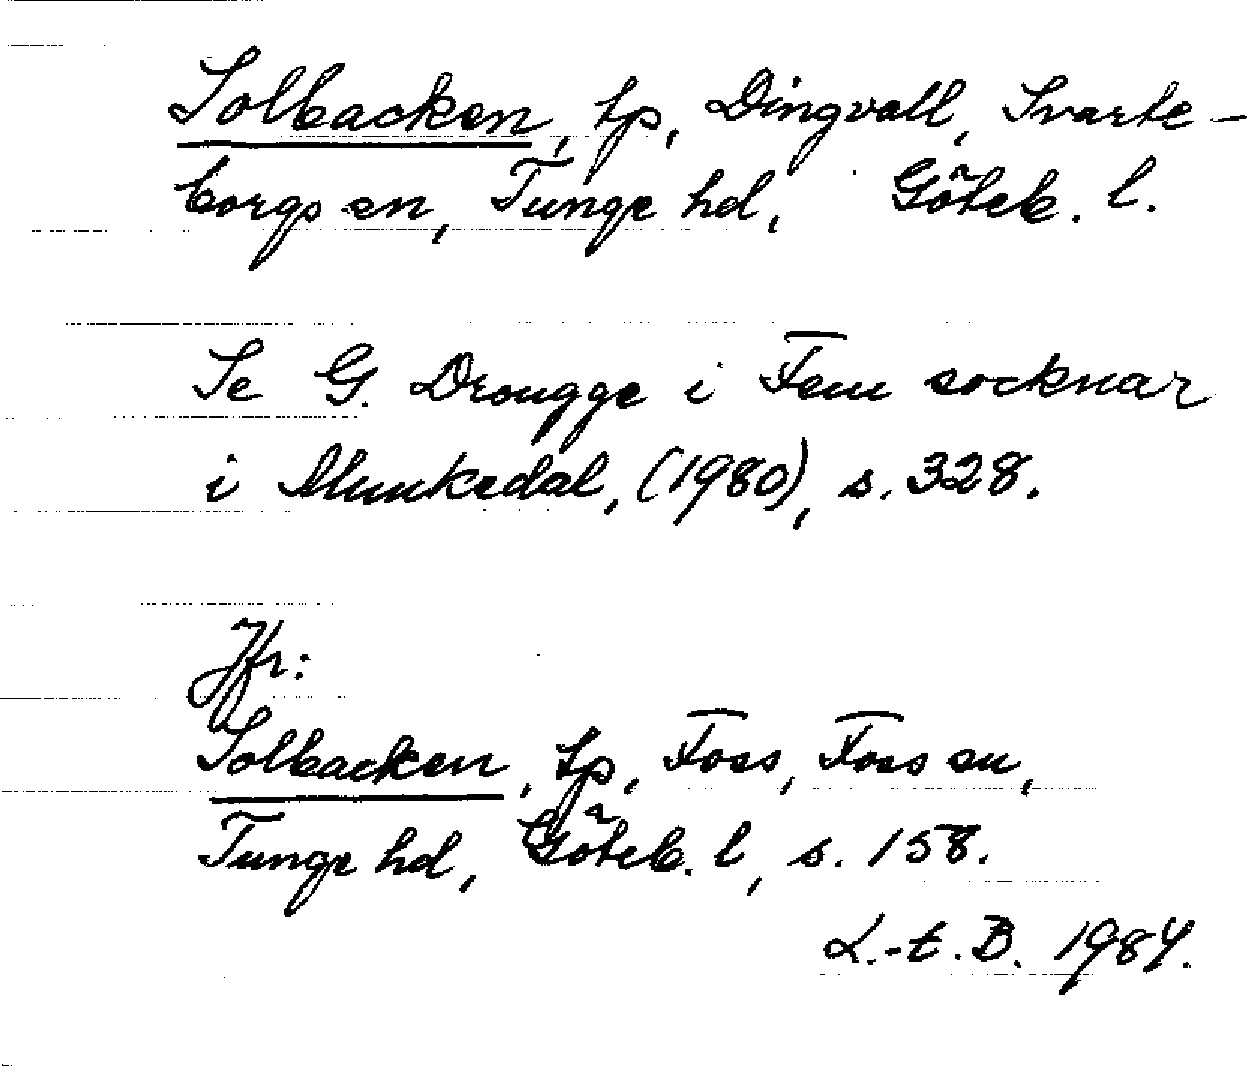 Solbacken, tp, Dingvall, Svarte-
borgs sn, Tunge hd, Göteb. l.
Se G. Drougge i Fem socknar
i Munkedal, (1980), s. 328.
Jfr:
Solbacken, tp, Foss, Foss sn,
Tunge hd, Göteb. l, s. 158.
L.-t. B. 1984.